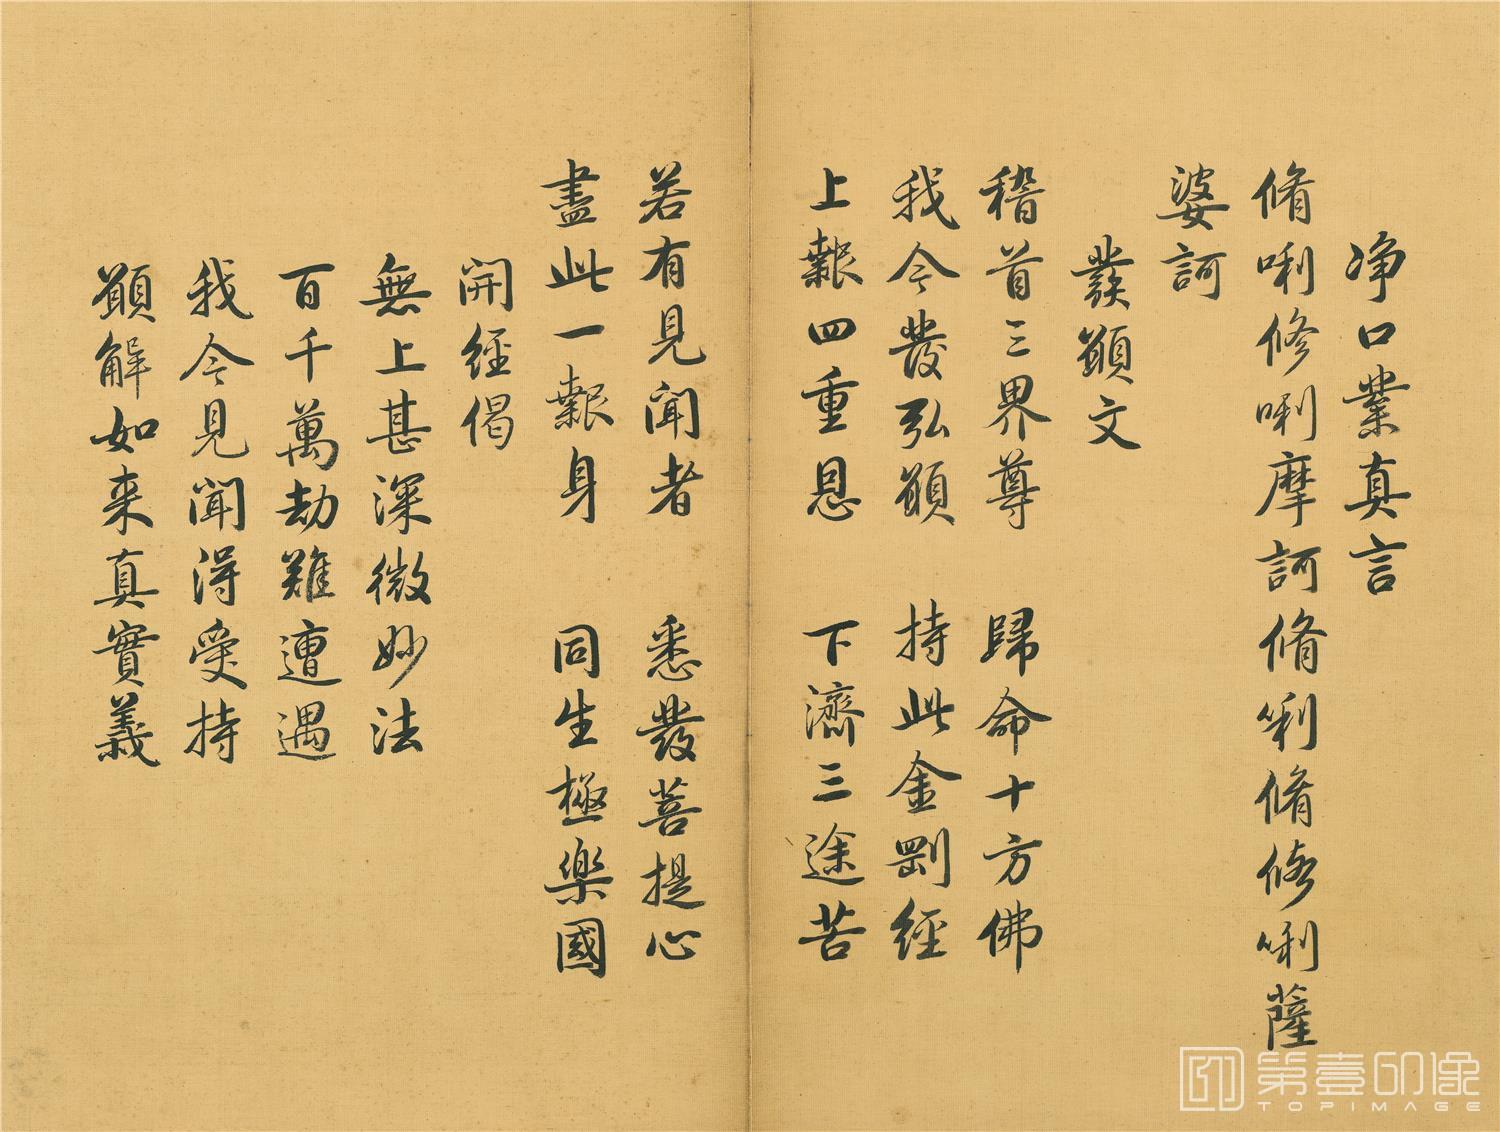 净口業真言
脩唎修唎摩訶脩利脩修唎薩
婆訶
發願文
稽首三界尊 歸命十方佛
我今發弘願 持此金剛經
上報四重恩 下濟三途苦
若有見聞者 悉發菩提心
盡此一報身 同生極樂國
開經偈
無上甚深微妙法
百千萬劫難遭遇
我今見聞得受持
願解如来真實義
第壹印像
TOPIMAGE